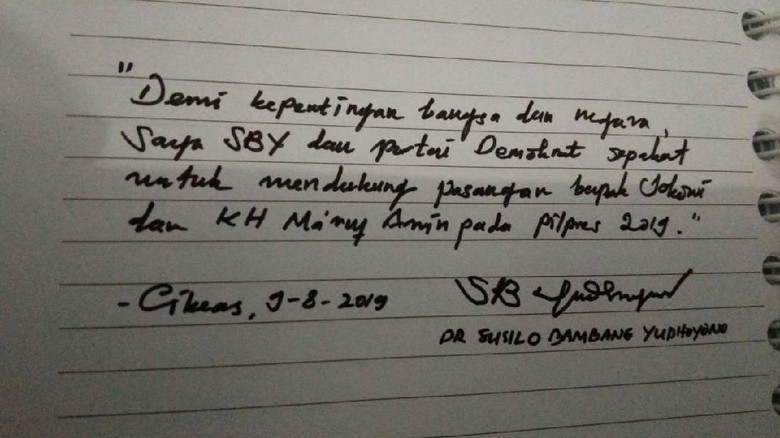 "Demi kepentingan bangsa dan negara,
Saya SBY dan partai Demokrat sepakat
untuk mendukung pasangan bapak Jokowi
dan KH Ma'ruf Amin pada pilpres 2019."
- Cikeas, 9-8-2019
SB Yudhoyono
DR SUSILO BAMBANG YUDHOYONO